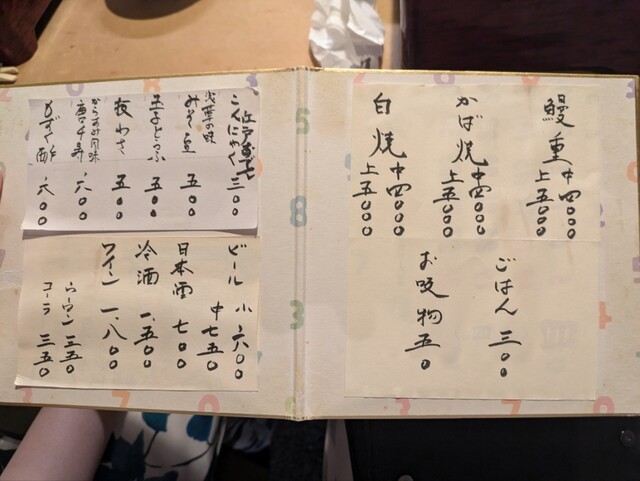 鰻重 中四〇〇〇
上五〇〇〇
かば焼 中四〇〇〇
上五〇〇〇
白焼 中四〇〇〇
上五〇〇〇
ごはん 三〇〇
お吸物 五〇
こんにゃく 三〇〇
みそ豆 五〇〇
玉子どうふ 五〇〇
板わさ 五〇〇
からすみ風味
六〇〇
もずく酢 六〇〇
ビール 小 六〇〇
中 七五〇
日本酒 七〇〇
冷酒 一、五〇〇
ワイン 一、八〇〇
ウーロン 三五〇
コーラ 三五〇